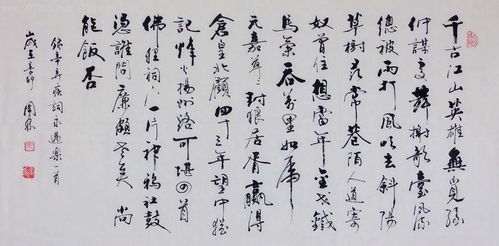 千古江山英雄無覓孫
仲謀處舞榭歌臺風流
總被雨打風吹去斜陽
草樹尋常巷陌人道寄
奴曾住想當年金戈鐵
馬氣吞萬里如虎
元嘉草草封狼居胥贏得
倉皇北顧四十三年望中猶
記烽火揚州路可堪回首
佛狸祠下一片神鴉社鼓
憑誰問廉頗老矣尚
能飯否
錄辛弃疾詞永遇樂一首
歲在辛卯 周